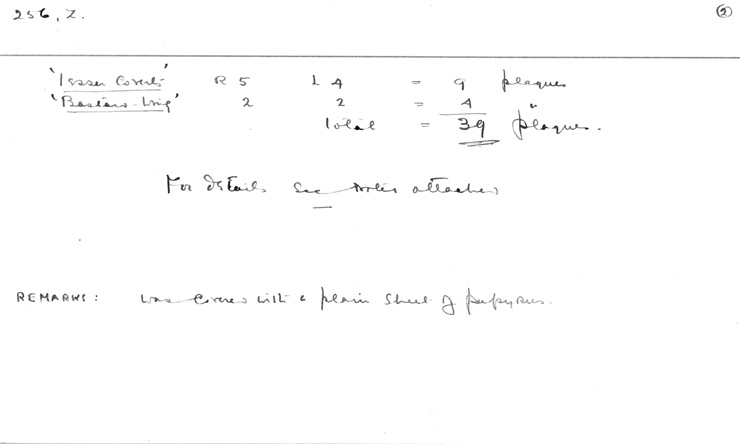 256, Z. ②
'Lesser Coverts' R 5 L 4 = 9 plaques
'Bastard-wing' 2 2 = 4 "
Total = 39 plaques.
For details see notes attached
REMARKS: Was covered with a plain sheet of papyrus.